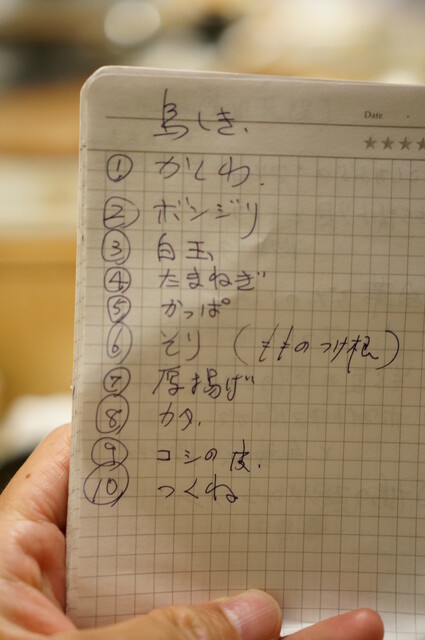 鳥しき.
Date
① かしわ.
② ボンジリ
③ 白玉
④ たまねぎ
⑤ かっぱ
⑥ そり (もものつけ根)
⑦ 厚揚げ
⑧ カタ.
⑨ コシの皮.
⑩ つくね